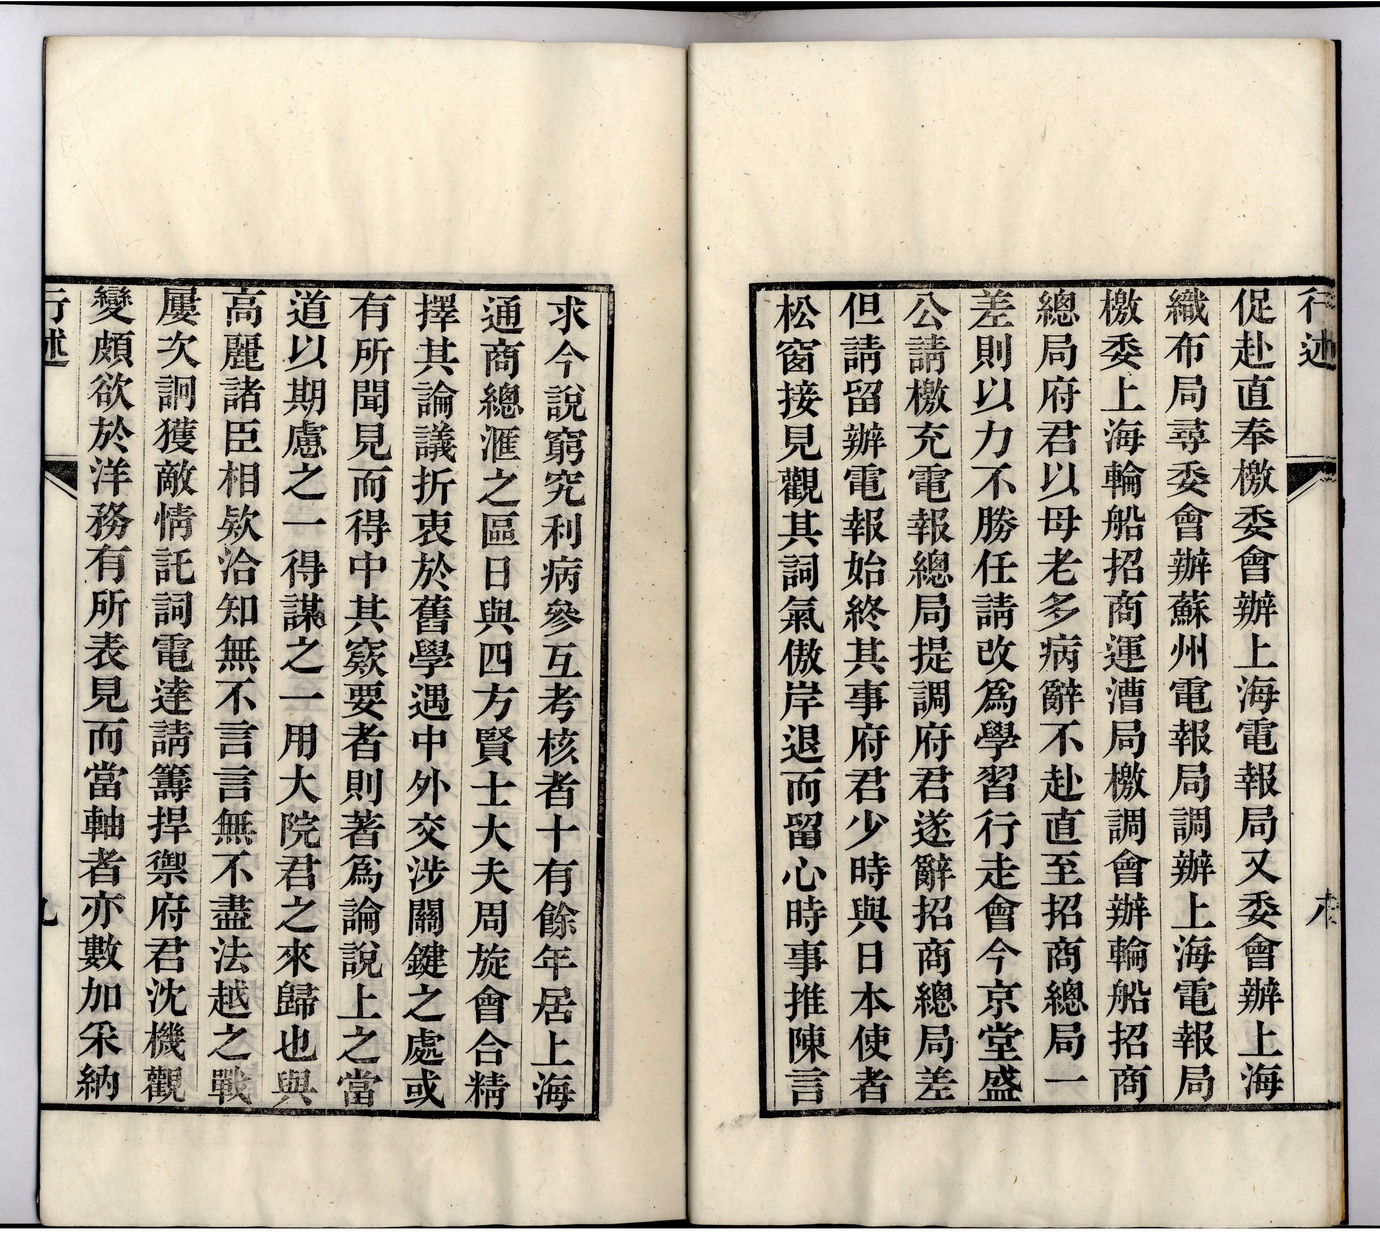 行述
八
促赴直奉檄委會辦上海電報局又委會辦上海
織布局尋委會辦蘇州電報局調辦上海電報局
檄委上海輪船招商運漕局檄調會辦輪船招商
總局府君以母老多病辭不赴直至招商總局一
差則以力不勝任請改爲學習行走會今京堂盛
公請檄充電報總局提調府君遂辭招商總局差
但請留辦電報始終其事府君少時與日本使者
松窗接見觀其詞氣傲岸退而留心時事推陳言
求今說窮究利病參互考核者十有餘年居上海
通商總滙之區日與四方賢士大夫周旋會合精
擇其論議折衷於舊學遇中外交涉關鍵之處或
有所聞見而得中其窾要者則著爲論說上之當
道以期慮之一得謀之一用大院君之來歸也與
高麗諸臣相欵洽知無不言言無不盡法越之戰
屢次詗獲敵情託詞電達請籌捍禦府君沈機觀
變頗欲於洋務有所表見而當軸者亦數加采納
行述
九